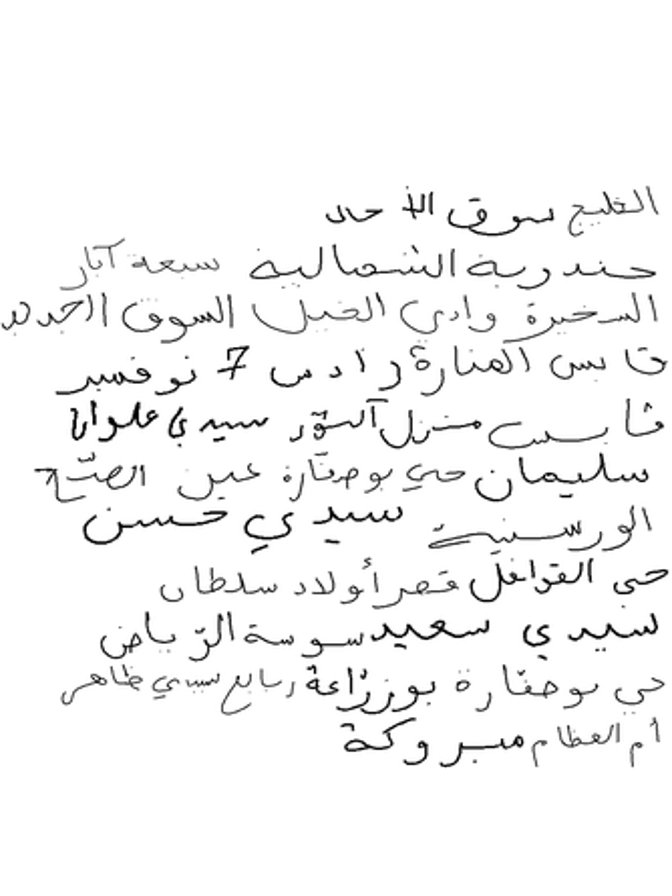 الخليج سوق الأحد
جندوبة الشمالية سبعة آبار
السخيرة وادي الخيل السوق الجديد
قابس المنارة رادس 7 نوفمبر
قابس منزل النور سيدي علوان
سليمان حي بوصفارة عين
الورسنية سيدي حسن
حي القوافل قصر أولاد سلطان
سيدي سعيد سوسة الرياض
حي بوصفارة بوزراعة رباع سيدي ظاهر
أم العظام مبروكة